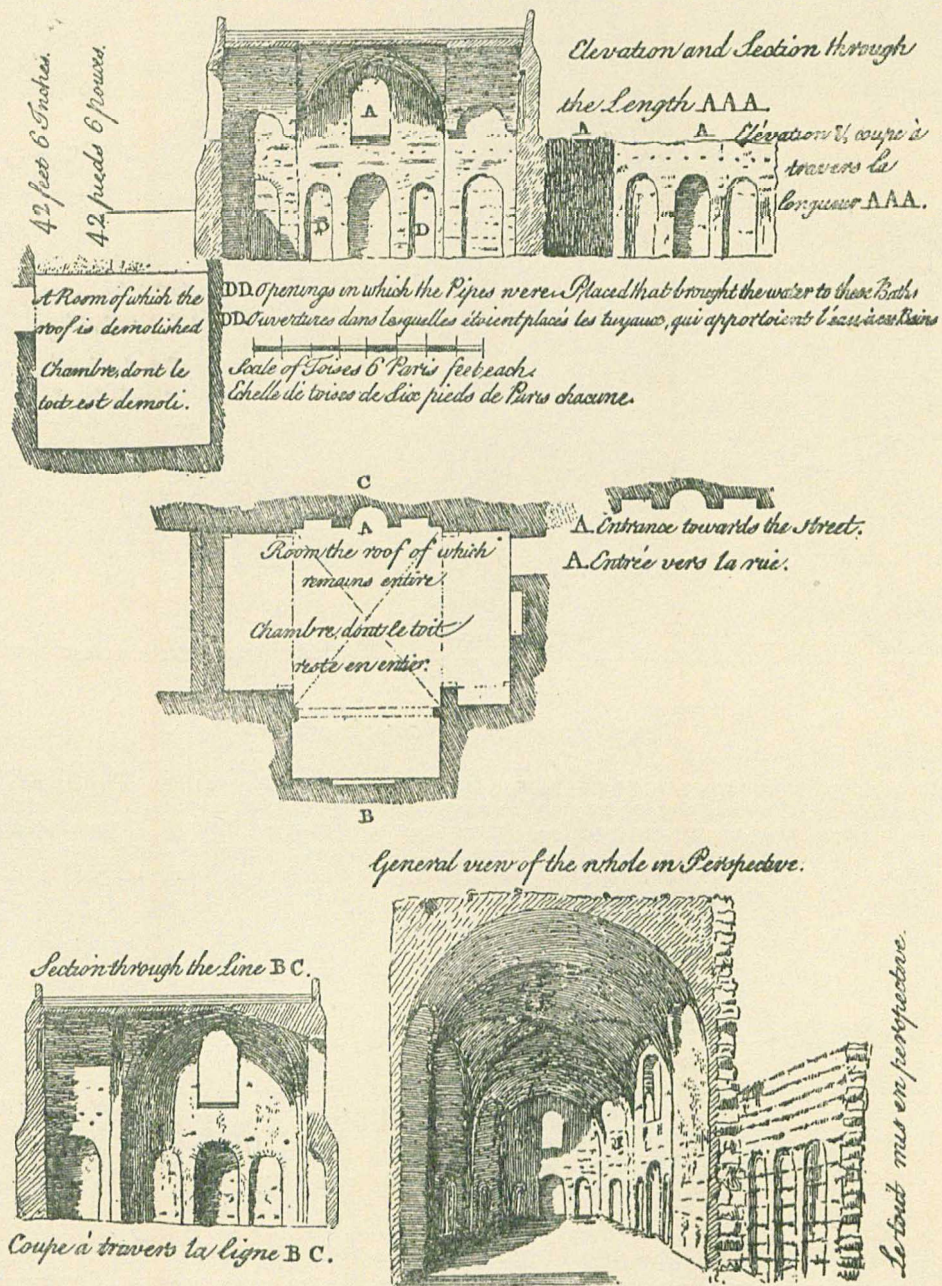 42 feet 6 Inches.
42 pieds 6 pouces.
Elevation and Section through
the Length AAA.
Elévation & coupe à
travers la
longueur AAA.
A
A
A
D
D
A Room of which the
roof is demolished
Chambre, dont le
toit est demoli.
DD. Openings in which the Pipes were Placed that brought the water to these Baths
DD. Ouvertures dans lesquelles étoient placés les tuyaux, qui apportoient l'eau à ces Bains
Scale of Toises 6 Paris feet each.
Echelle de toises de Six pieds de Paris chacune.
C
A
Room the roof of which
remains entire
Chambre, dont le toit
reste en entier.
B
A. Entrance towards the street.
A. Entrée vers la rue.
General view of the whole in Perspective.
Le tout mis en perspective.
Section through the Line B C.
Coupe à travers la ligne B C.